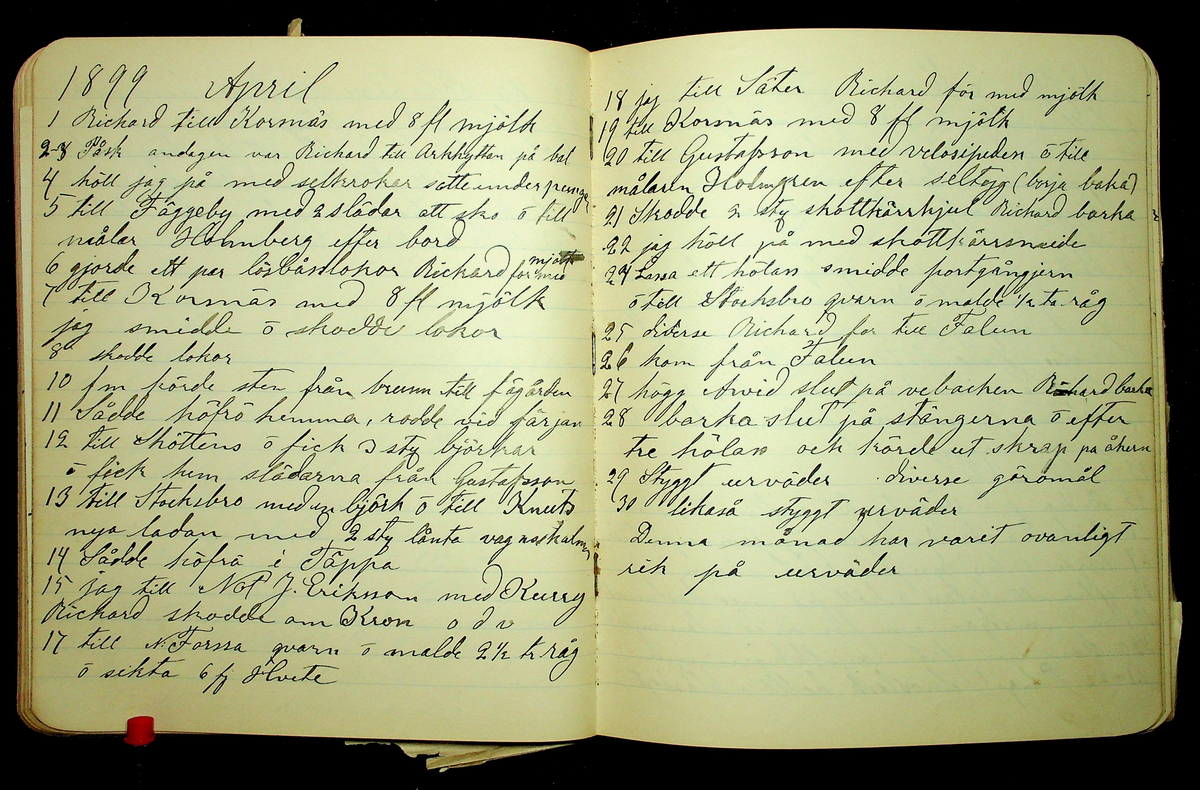 1899 April
1 Richard till Korsnäs med 8 fl mjölk
2-3 Påsk andagen var Richard till Arkhyttan på bal
4 höll jag på med selkrokar
5 till Fäggeby med 2 slädar att sko o till
målar Holmberg efter bord
6 gjorde ett par lösbåslokor Richard för med mjölk
7 till Korsnäs med 8 fl mjölk
jag smidde o skodde lokor
8 skodde lokor
10 fm körde sten från brunn till fägården
11 Sådde höfrö hemma, rodde vid färjan
12 till Sköttens o fick 3 sty björkar
o fick hem slädarna från Gustafsson
13 till Stocksbro med en björk o till Knuts
nya ladan med 2 sty lånta vagnsskalmar
14 Sådde höfrö i Täppa
15 jag till Not J. Eriksson med Kurry
Richard skodde om Kron o d v
17 till N. Forssa qvarn o malde 2 ½ tr råg
o sikta 6 fj Hvete
18 jag till Säter Richard för med mjölk
19 till Korsnäs med 8 fl mjölk
20 till Gustafsson med velosipeden o till
målaren Holmgren efter seltyg (börja baka)
21 Skodde 2 sty skottkärrhjul Richard barka
22 jag höll på med skottkärrsmide
24 Lassa ett hölass smidde portgångjern
o till Stocksbro qvarn o malde ½ ta råg
25 diverse Richard for till Falun
26 kom från Falun
27 högg Arvid slut på vebacken Richard barka
28 barka slut på stängerna o efter
tre hölass och körde ut skrap på åkern
29 Styggt urväder diverse göromål
30 likaså styggt urväder
Denna månad har varit ovanligt
rik på urväder